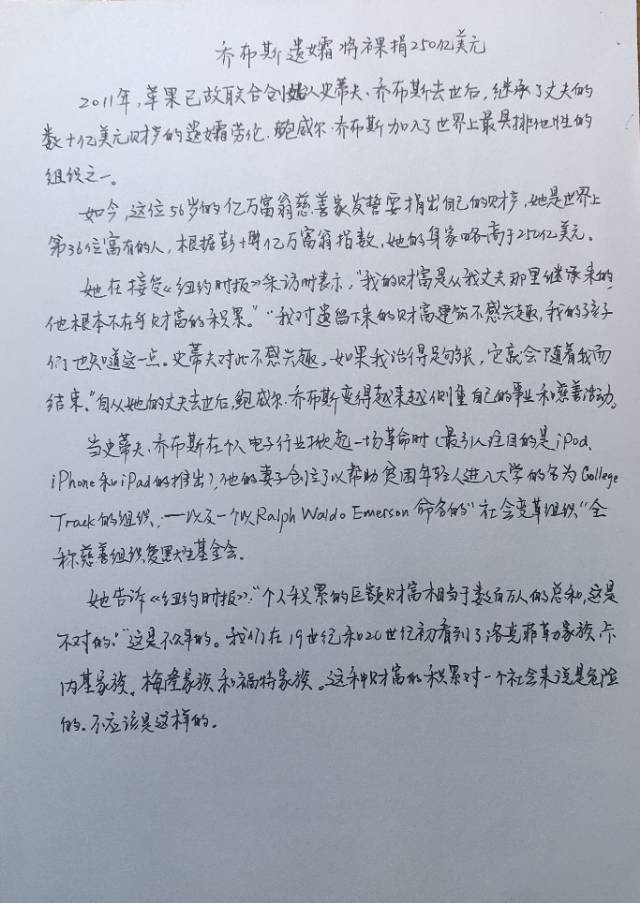 乔布斯遗孀将裸捐250亿美元
2011年，苹果已故联合创始人史蒂夫·乔布斯去世后，继承了丈夫的
数十亿美元财产的遗孀劳伦·鲍威尔·乔布斯加入了世界上最具排他性的
组织之一。
如今，这位56岁的亿万富翁慈善家发誓要捐出自己的财产，她是世界上
第36位富有的人，根据彭博亿万富翁指数，她的身家略高于250亿美元。
她在接受《纽约时报》采访时表示，“我的财富是从我丈夫那里继承来的，
他根本不在乎财富的积累。”“我对遗留下来的财富建筑不感兴趣，我的孩子
们也知道这一点。史蒂夫对此不感兴趣。如果我活得足够长，它就会随着我而
结束。”自从她的丈夫去世后，鲍威尔·乔布斯变得越来越侧重自己的事业和慈善活动。
当史蒂夫·乔布斯在个人电子行业掀起一场革命时（最引人注目的是iPod、
iPhone和iPad的推出），他的妻子创立了以帮助贫困年轻人进入大学的名为College
Track的组织，—以及一个以Ralph Waldo Emerson命名的“社会变革组织”全
称慈善组织爱默生基金会。
她告诉《纽约时报》：“个人积累的巨额财富相当于数百万人的总和，这是
不对的。”“这是不公平的。我们在19世纪和20世纪初看到了洛克菲勒家族、卡
内基家族、梅隆家族和福特家族。这种财富的积累对一个社会来说是危险
的。不应该是这样的。